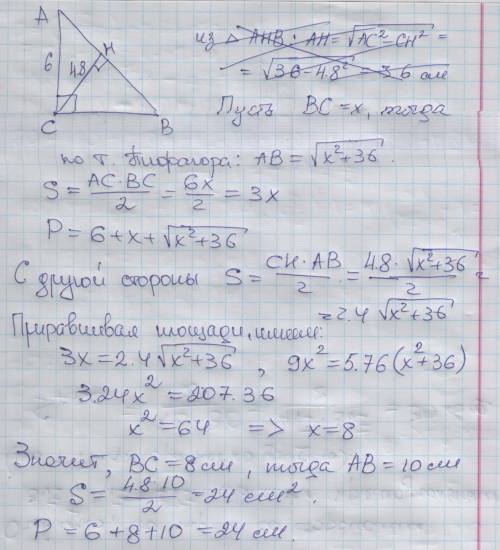 A
H
6
4.8
C
B
из △ AHB: AH = √AC² - CH² =
= √36 - 4.8² = 3.6 см
Пусть BC = x, тогда
по т. Пифагора: AB = √x² + 36.
S = AC·BC/2 = 6x/2 = 3x
P = 6 + x + √x² + 36
С другой стороны S = CH·AB/2 = 4.8·√x² + 36/2 =
= 2.4 √x² + 36
Приравнивая площади, имеем:
3x = 2.4 √x² + 36, 9x² = 5.76(x² + 36)
3.24x² = 207.36
x² = 64 => x = 8
Значит, BC = 8 см, тогда AB = 10 см
S = 4.8·10/2 = 24 см².
P = 6 + 8 + 10 = 24 см.